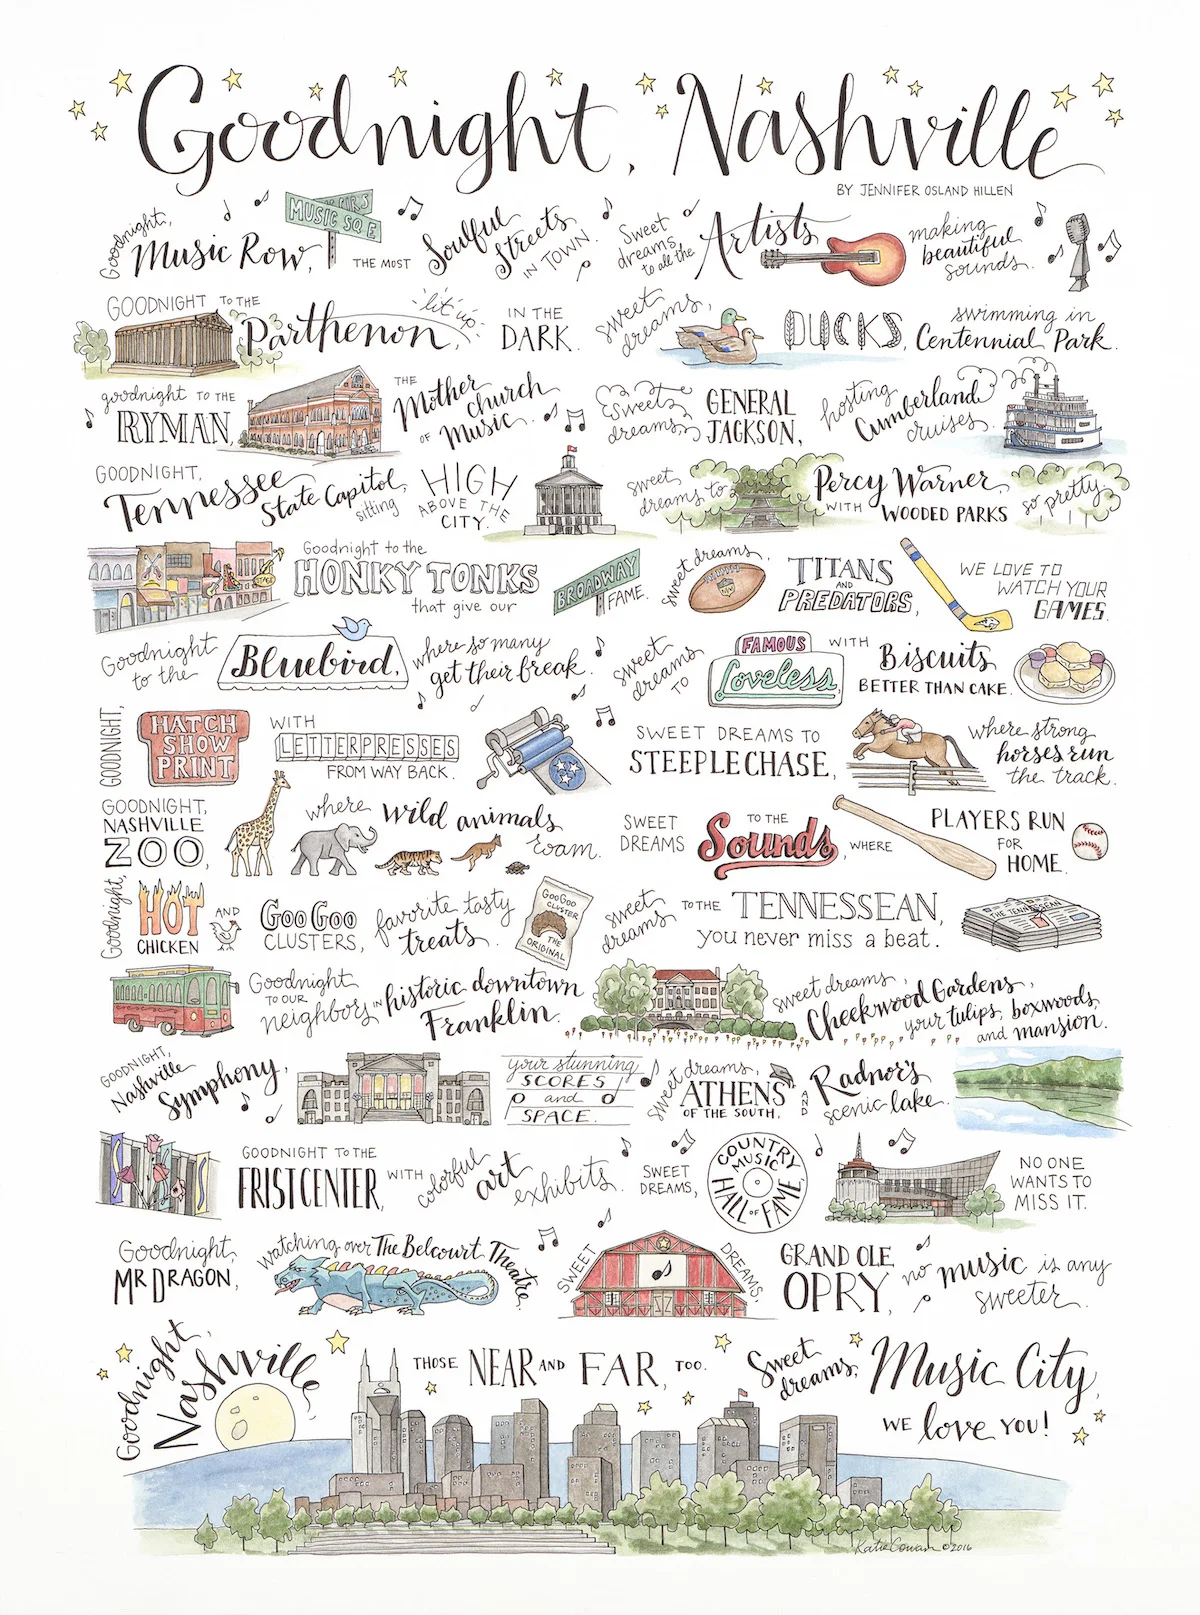 Goodnight, Nashville
BY JENNIFER OSLAND HILLEN
Goodnight, Music Row, THE MOST Soulful Streets IN TOWN.
MUSIC SQ E
Sweet dreams to all the Artists making beautiful sounds.
GOODNIGHT TO THE Parthenon, lit up IN THE DARK.
Sweet dreams, DUCKS, swimming in Centennial Park.
goodnight TO THE RYMAN, THE Mother church OF Music.
Sweet dreams, GENERAL JACKSON, hosting Cumberland cruises.
GOODNIGHT, Tennessee State Capitol, sitting HIGH ABOVE THE CITY.
sweet dreams to Percy Warner, WITH WOODED PARKS so pretty.
STAGE
Goodnight to the HONKY TONKS that give our BROADWAY FAME.
sweet dreams, TITANS AND PREDATORS, WE LOVE TO WATCH YOUR GAMES.
Goodnight to the Bluebird, where so many get their break.
sweet dreams TO FAMOUS Loveless, WITH BISCUITS BETTER THAN CAKE.
GOODNIGHT, HATCH SHOW PRINT WITH LETTERPRESSES FROM WAY BACK.
SWEET DREAMS TO STEEPLECHASE, where strong horses run the track.
GOODNIGHT, NASHVILLE ZOO, where wild animals roam.
SWEET DREAMS TO THE Sounds, WHERE PLAYERS RUN FOR HOME.
Goodnight, HOT CHICKEN AND GOO GOO CLUSTERS, favorite tasty treats.
GOOGOO CLUSTER THE ORIGINAL
sweet dreams TO THE TENNESSEAN, you never miss a beat.
THE TENNESSEAN
Goodnight TO OUR neighbors IN historic downtown Franklin.
sweet dreams, Cheekwood Gardens, your tulips, boxwoods, and mansion.
GOODNIGHT, Nashville Symphony, your stunning SCORES and SPACE.
Sweet dreams, ATHENS OF THE SOUTH, AND Radnor's scenic lake.
GOODNIGHT TO THE FRIST CENTER, WITH colorful art exhibits.
SWEET DREAMS, COUNTRY MUSIC HALL OF FAME, NO ONE WANTS TO MISS IT.
Goodnight, MR DRAGON, watching over The Belcourt Theatre,
SWEET DREAMS, GRAND OLE OPRY, no music is any sweeter.
Goodnight, Nashville, THOSE NEAR AND FAR, TOO.
Sweet dreams, Music City, WE love YOU!
Katie Cowan © 2016